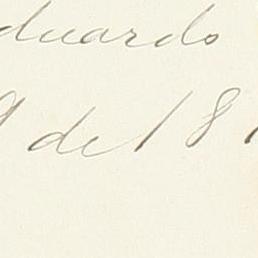 duardo
9 de 18